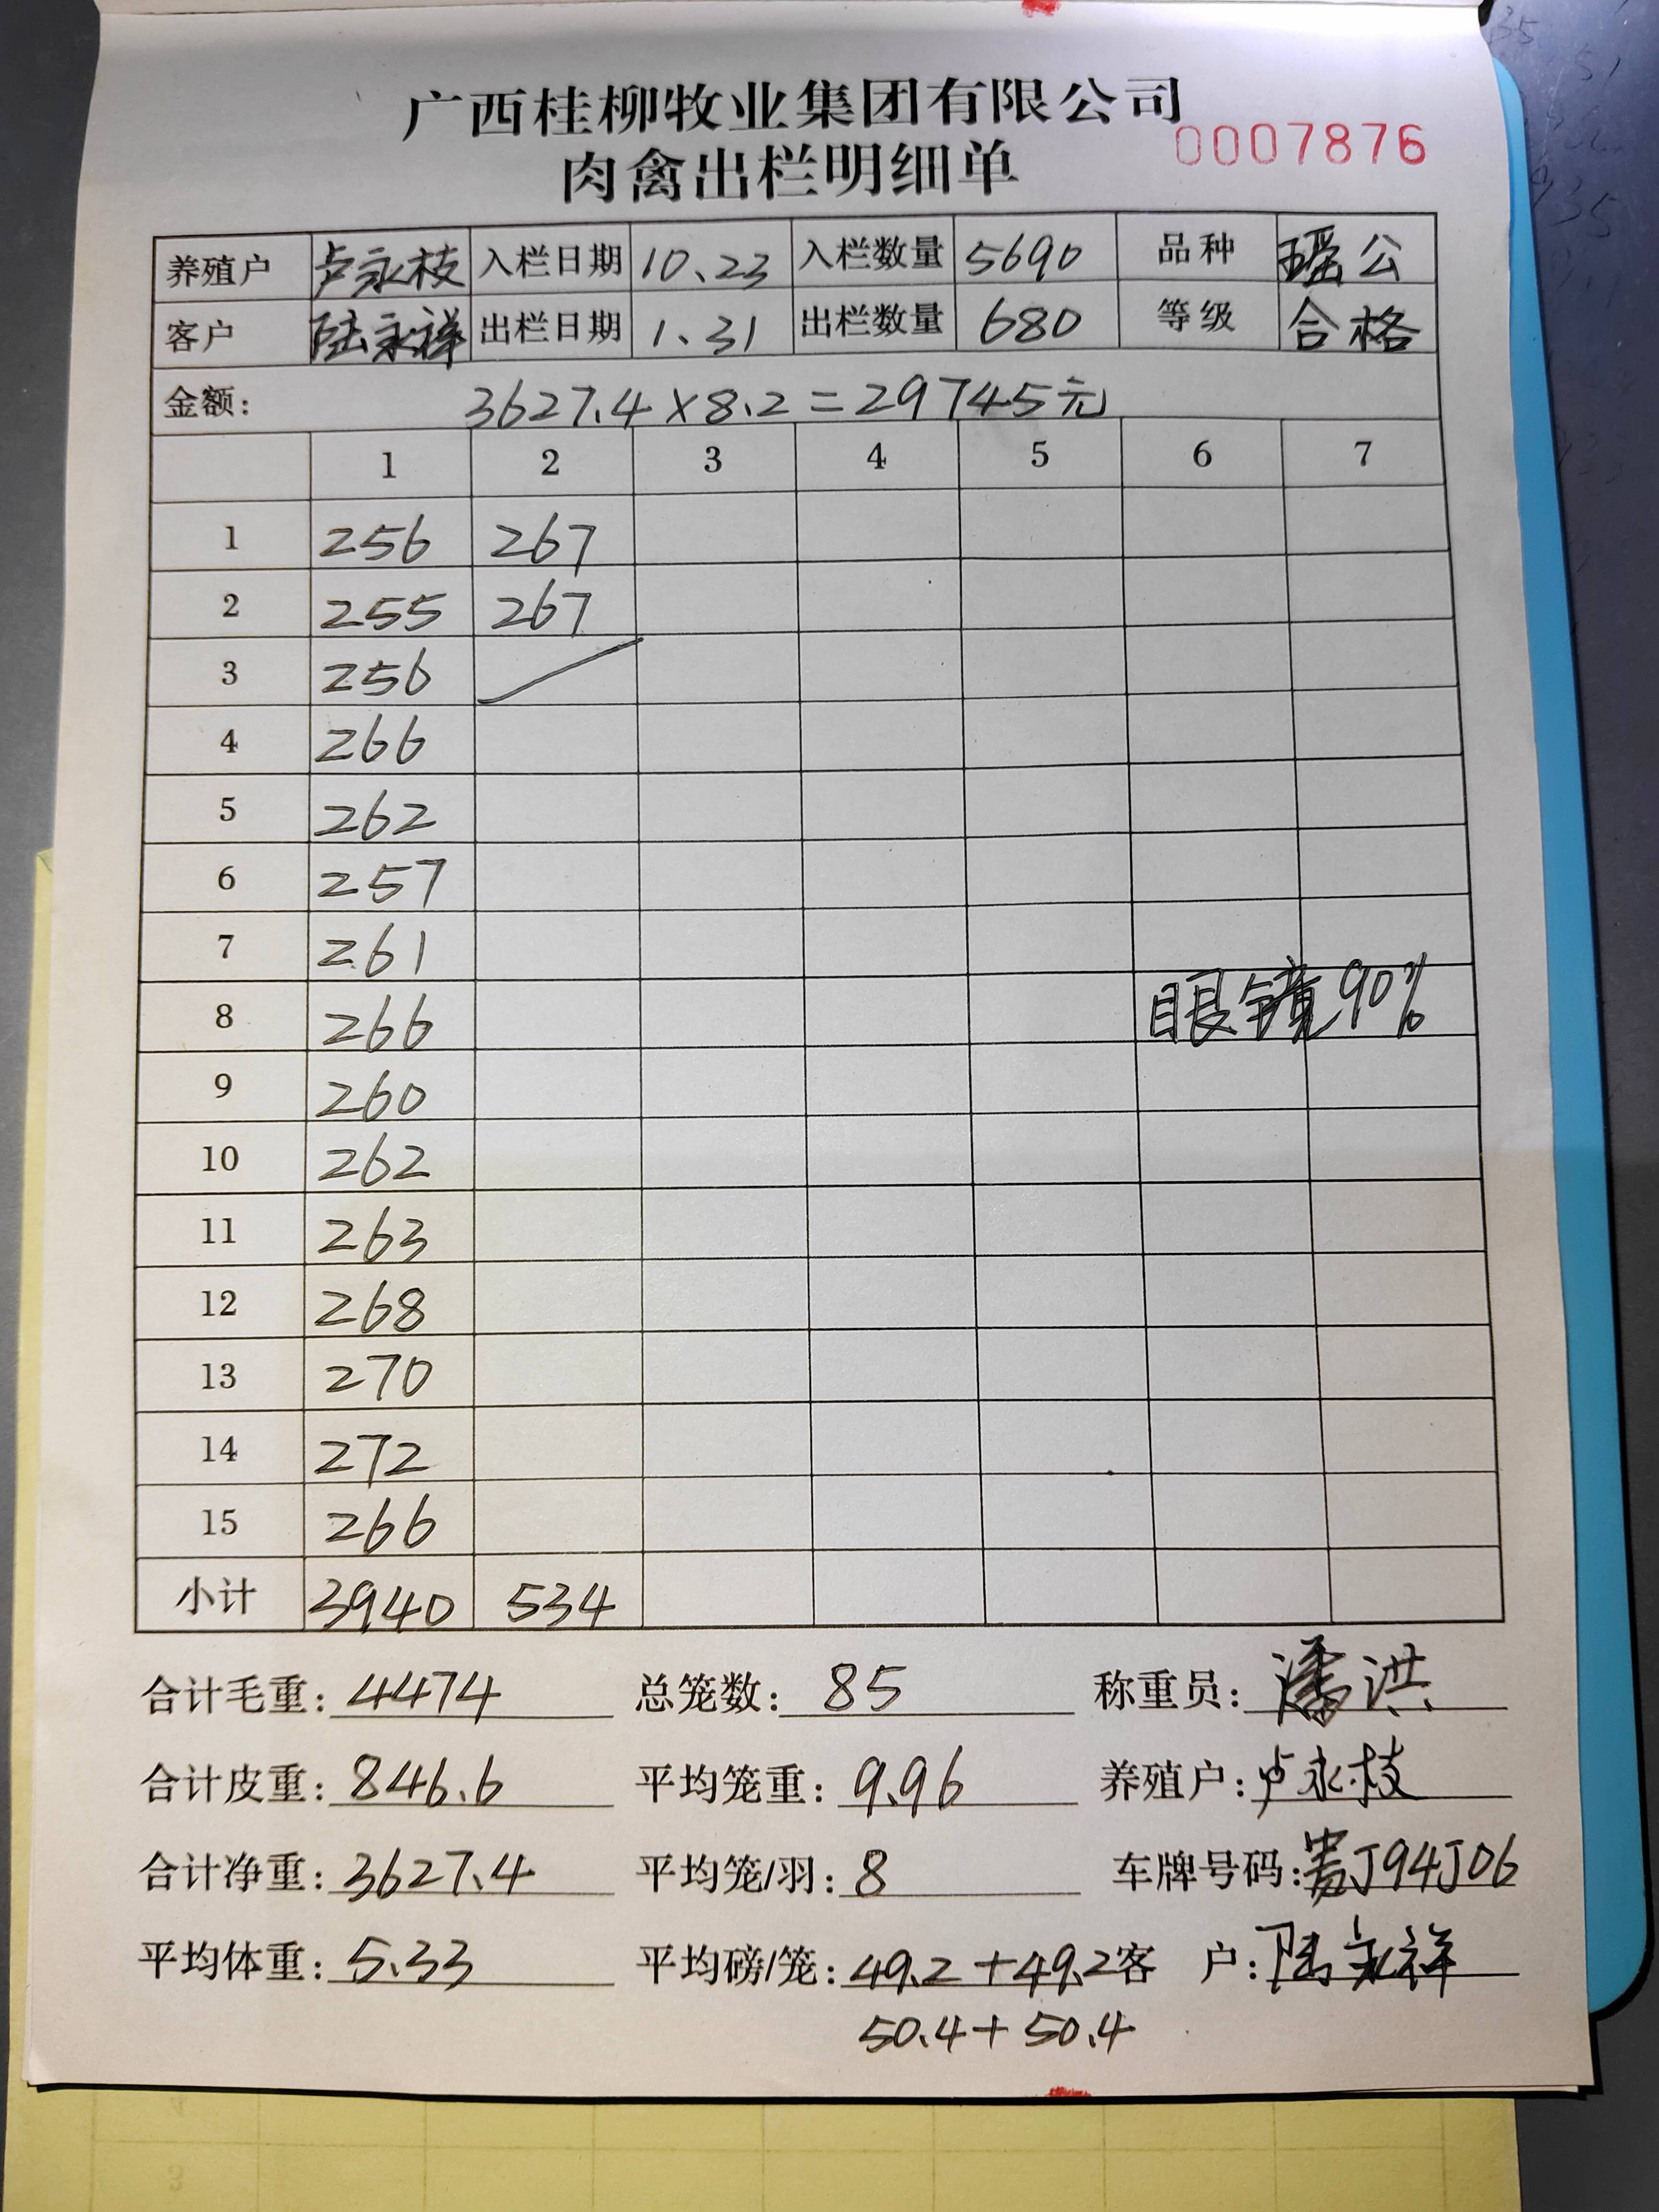 广西桂柳牧业集团有限公司
0007876
肉禽出栏明细单
养殖户 卢永枝 入栏日期 10.23 入栏数量 5690 品种 瑶公
客户 陆永祥 出栏日期 1.31 出栏数量 680 等级 合格
金额: 3627.4×8.2=29745元
1 2 3 4 5 6 7
1 256 267
2 255 267
3 256
4 266
5 262
6 257
7 261
8 266 眼镜90%
9 260
10 262
11 263
12 268
13 270
14 272
15 266
小计 3940 534
合计毛重: 4474 总笼数: 85 称重员: 潘洪
合计皮重: 846.6 平均笼重: 9.96 养殖户: 卢永枝
合计净重: 3627.4 平均笼/羽: 8 车牌号码: 贵J94J06
平均体重: 5.33 平均磅/笼: 49.2+49.2 客 户: 陆永祥
50.4+50.4